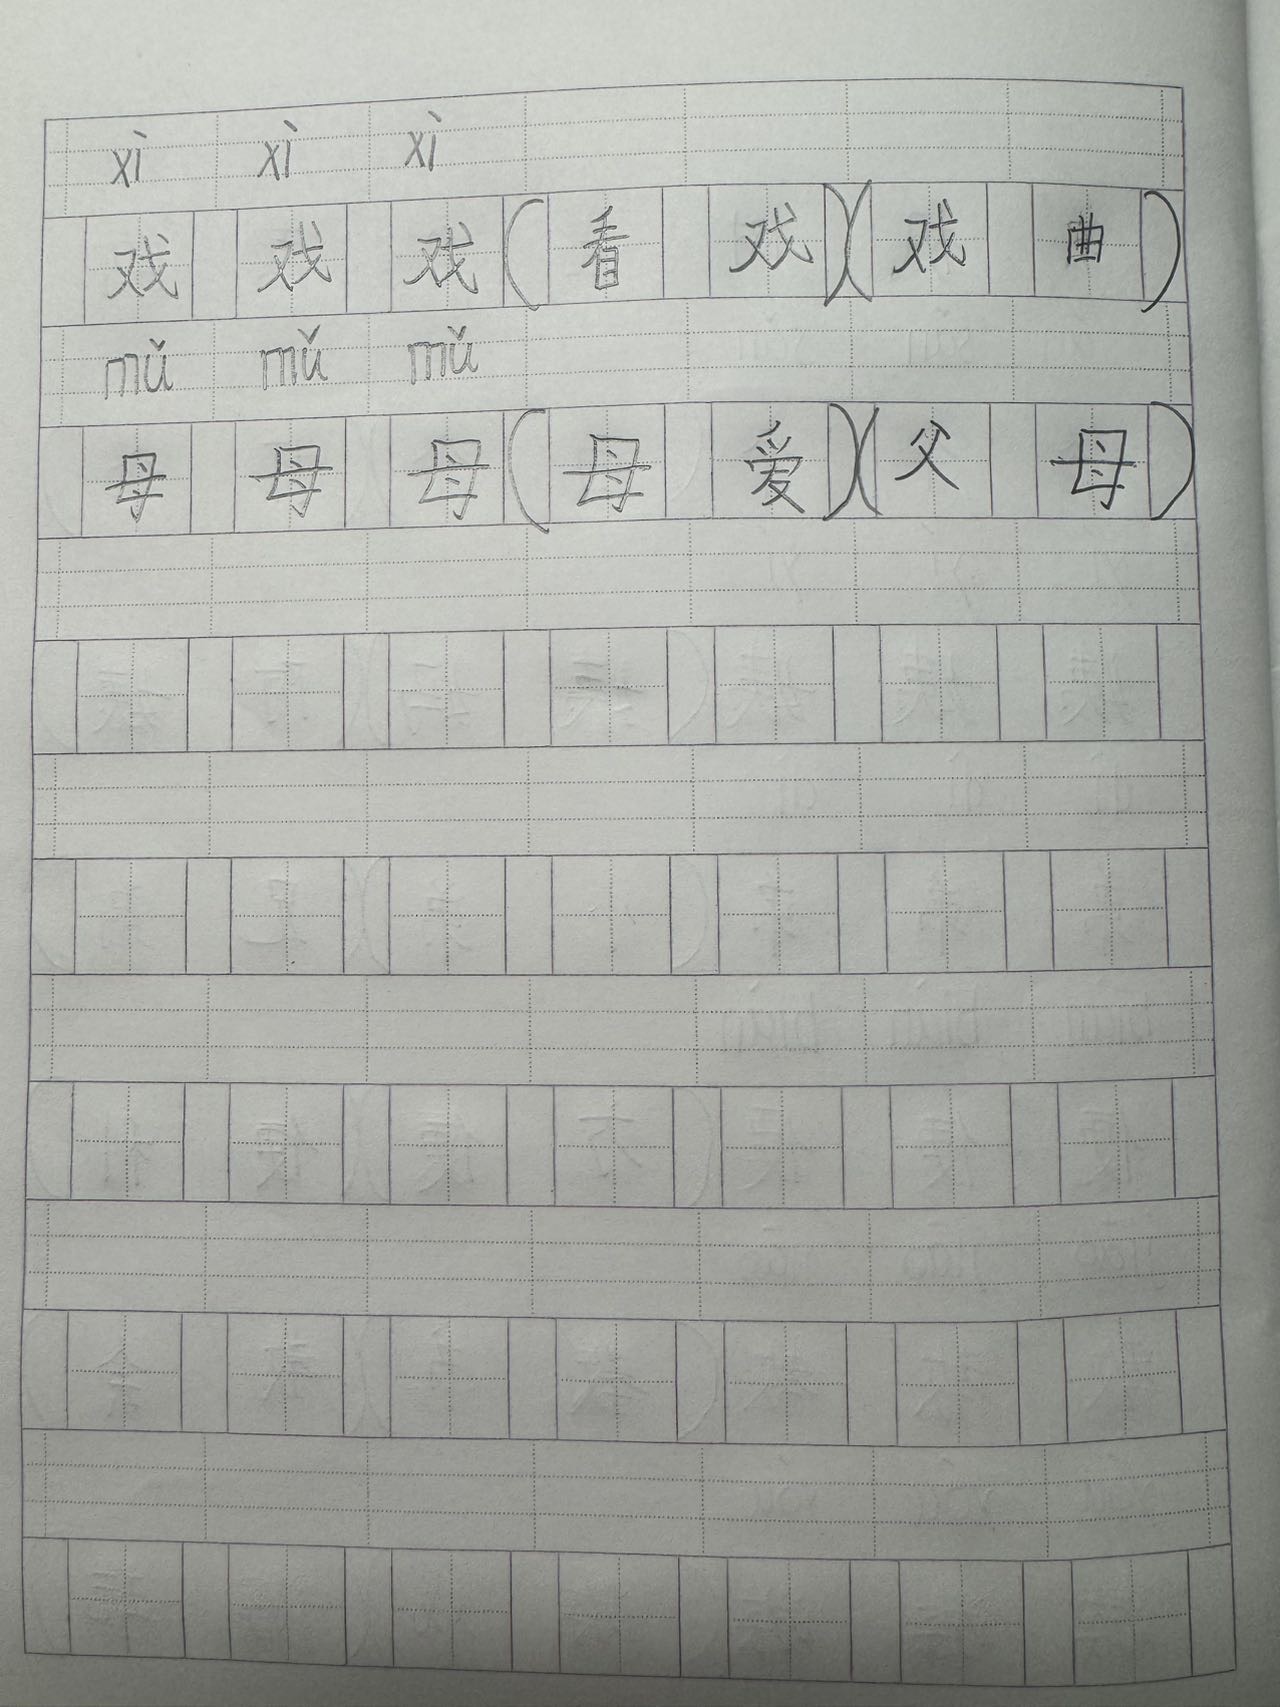 xì xì xì
戏 戏 戏 (看 戏)(戏 曲)
mǔ mǔ mǔ
母 母 母 (母 爱)(父 母)